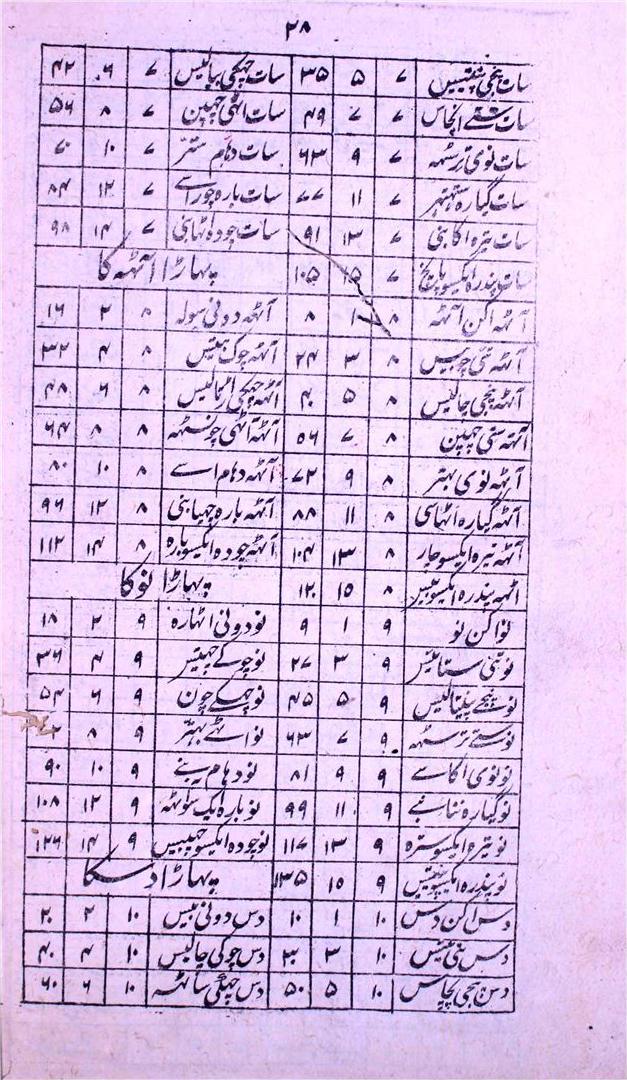 ۲۸
سات پنجی پنتیس ۷ ۵ ۳۵ سات چھکی بیالیس ۷ ۶ ۴۲
سات ستے انچاس ۷ ۷ ۴۹ سات اٹھی چھپن ۷ ۸ ۵۶
سات نوی ترسٹھہ ۷ ۹ ۶۳ سات دہام ستر ۷ ۱۰ ۷۰
سات گیارہ ستہتر ۷ ۱۱ ۷۷ سات بارہ چوراسے ۷ ۱۲ ۸۴
سات تیرہ اکانبی ۷ ۱۳ ۹۱ سات چودہ اٹھانبی ۷ ۱۴ ۹۸
سات پندرہ ایکسو پانچ ۷ ۱۵ ۱۰۵ پہاڑا آٹھہ کا
آٹھہ اکن آٹھہ ۸ ۱ ۸ آٹھہ دونی سولہ ۸ ۲ ۱۶
آٹھہ تئی چوبیس ۸ ۳ ۲۴ آٹھہ چوک بتیس ۸ ۴ ۳۲
آٹھہ پنجی چالیس ۸ ۵ ۴۰ آٹھہ چھکی اڑتالیس ۸ ۶ ۴۸
آٹھہ ستی چھپن ۸ ۷ ۵۶ آٹھہ آٹھی چونسٹھہ ۸ ۸ ۶۴
آٹھہ نوی بہتر ۸ ۹ ۷۲ آٹھہ دہام اسے ۸ ۱۰ ۸۰
آٹھہ گیارہ اٹھاسی ۸ ۱۱ ۸۸ آٹھہ بارہ چھیانبی ۸ ۱۲ ۹۶
آٹھہ تیرہ ایکسو چار ۸ ۱۳ ۱۰۴ آٹھہ چودہ ایکسو بارہ ۸ ۱۴ ۱۱۲
اٹھہ پندرہ ایکسو بیس ۸ ۱۵ ۱۲۰ پہاڑا نو کا
نو اکن نو ۹ ۱ ۹ نو دونی اٹھارہ ۹ ۲ ۱۸
نو تئی ستائیس ۹ ۳ ۲۷ نو چوکے چھتیس ۹ ۴ ۳۶
نو پنجے پینتالیس ۹ ۵ ۴۵ نو چھکے چون ۹ ۶ ۵۴
نو ستے ترسٹھہ ۹ ۷ ۶۳ نو اٹھے بہتر ۹ ۸
نو نوی اکاسے ۹ ۹ ۸۱ نو دہام نبے ۹ ۱۰ ۹۰
نو گیارہ ننانبے ۹ ۱۱ ۹۹ نو بارہ ایک سو اٹھہ ۹ ۱۲ ۱۰۸
نو تیرہ ایکسو سترہ ۹ ۱۳ ۱۱۷ نو چودہ ایکسو چھبیس ۹ ۱۴ ۱۲۶
نو پندرہ ایکسو پینتیس ۹ ۱۵ ۱۳۵ پہاڑا دس کا
دس اکن دس ۱۰ ۱ ۱۰ دس دونی بیس ۱۰ ۲ ۲۰
دس تئی تیس ۱۰ ۳ دس چوکی چالیس ۱۰ ۴ ۴۰
دس پنجی پچاس ۱۰ ۵ ۵۰ دس چھکی ساٹھہ ۱۰ ۶ ۶۰